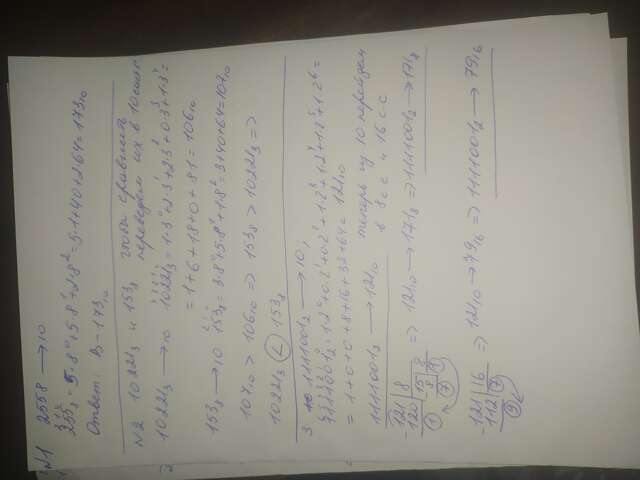 №1 255₈ → 10
255₈ = 5·8⁰+5·8¹+2·8² = 5·1+40+2·64 = 173₁₀
Ответ: В-173₁₀
№2 10221₃ и 153₈ чтобы сравнить переведём их в 10 сист.
10221₃ → 10 10221₃ = 1·3⁰+2·3¹+2·3²+0·3³+1·3⁴ =
= 1+6+18+0+81 = 106₁₀
153₈ → 10 153₈ = 3·8⁰+5·8¹+1·8² = 3+40+64 = 107₁₀
107₁₀ > 106₁₀ => 153₈ > 10221₃ =>
10221₃ < 153₈
3 1111001₂ → 10;
1111001₂ = 1·2⁰+0·2¹+0·2²+1·2³+1·2⁴+1·2⁵+1·2⁶ =
= 1+0+0+8+16+32+64 = 121₁₀
1111001₂ → 121₁₀ теперь из 10 переведём
в 8 с с и 16 с с
121 | 8
120 | 15 | 8
1 8 1
7
=> 121₁₀ → 171₈ => 1111001₂ → 171₈
121 | 16
112 | 7
9
=> 121₁₀ → 79₁₆ => 1111001₂ → 79₁₆